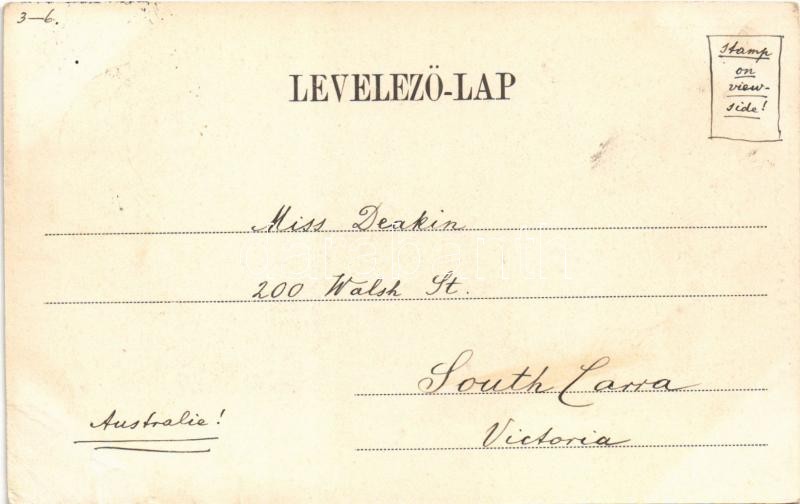 3-6.
stamp
on
view-
side!
LEVELEZŐ-LAP
Miss Deakin
200 Walsh St.
South Carra
Australie!
Victoria